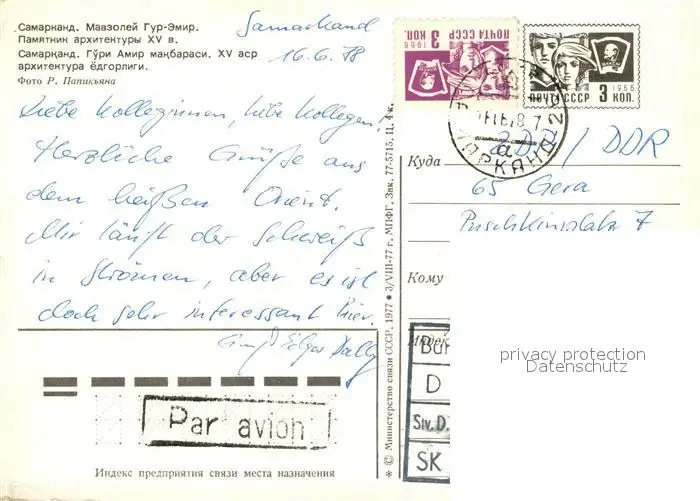 Самарканд. Мавзолей Гур-Эмир.
Памятник архитектуры XV в.
Самарқанд. Гўри Амир мақбараси. XV аср
архитектура ёдгорлиги.
Фото Р. Папикьяна
Samarkand
16.6.78
Liebe Kolleginnen, liebe Kollegen,
Herzliche Grüße aus
dem heißen Orient.
Mir läuft der Schweiß
in Strömen, aber es ist
doch sehr interessant hier.
Gruß Edgar
Par avion
Индекс предприятия связи места назначения
* © Министерство связи СССР, 1977 ● 3/VIII-77 г. МПФГ. Зак. 77-5715. Ц. 4 к.
ПОЧТА СССР 3 КОП.
1966
1966
ПОЧТА СССР 3 КОП.
Куда
/ DDR
65 Gera
Puschkinplatz 7
Кому
Индекс
D
Siv. D.
SK
privacy protection
Datenschutz